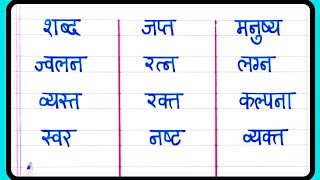 शब्द जप्त मनुष्य
ज्वलन रत्न लग्न
व्यस्त रक्त कल्पना
स्वर नष्ट व्यक्त